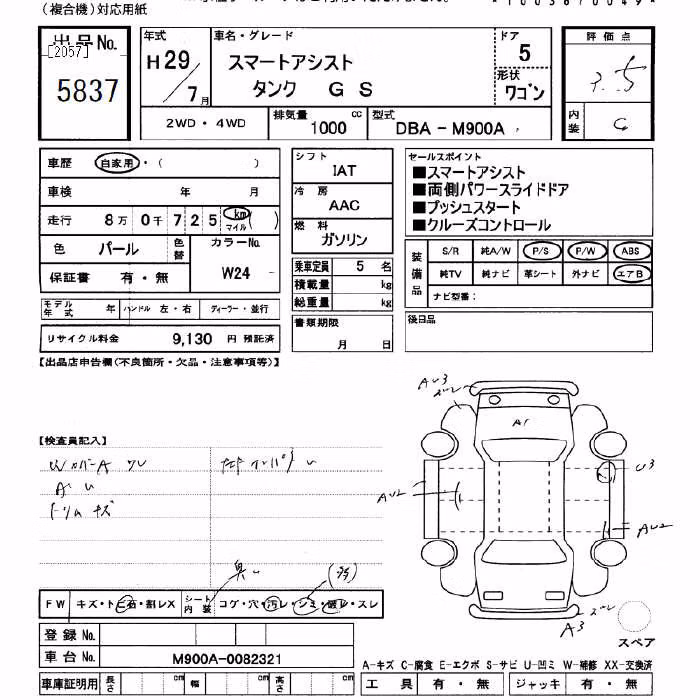 (複合機)対応用紙
出品No.
[2057]
5837
年式
H29/7月
車名・グレード
スマートアシスト
タンク GS
ドア
5
形状
ワゴン
評価点
3.5
内装
C
2WD・4WD
排気量
1000 cc
型式
DBA-M900A
車歴 自家用・( )
車検 年 月
走行 8万0千725 km マイル ( )
色 パール 色替
カラーNo.
W24
保証書 有・無
モデル年式 年 ハンドル 左・右 ディーラー・並行
リサイクル料金 9,130 円 預託済
シフト
IAT
冷房
AAC
燃料
ガソリン
乗車定員 5 名
積載量 kg
総重量 kg
書類期限
月 日
セールスポイント
■スマートアシスト
■両側パワースライドドア
■プッシュスタート
■クルーズコントロール
装備品
S/R 純A/W P/S P/W ABS
純TV 純ナビ 革シート 外ナビ エアB
ナビ型番:
後日品
【出品店申告欄(不良箇所・欠品・注意事項等)】
【検査員記入】
AU3
A1
U3
AU2
AU2
A3
スペア
FW キズ・トビ石・割レX
シート内装 コゲ・穴・汚レ・シミ・破レ・スレ
登録No.
車台No. M900A-0082321
車庫証明用 長さ cm 幅 cm 高さ cm
A-キズ C-腐食 E-エクボ S-サビ U-凹ミ W-補修 XX-交換済
工具 有・無 ジャッキ 有・無